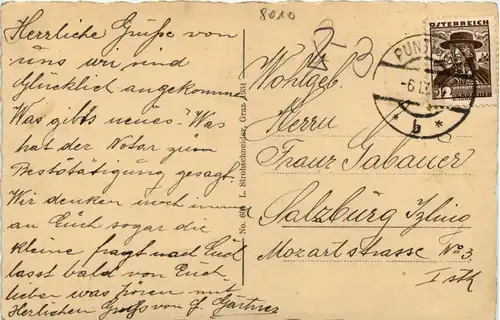 8010
Herrliche Grüße von
uns wir sind
Glücklich angekommen
Was gibts neues? Was
hat der Notar zum
Bestötätigung gesagt.
Wir denken noch immer
an Euch sogar die
kleine fragt nach Euch
lasst bald von Euch
lieber was hören mit
Herlichen Gruß von G. Gärtner
L. Strohschneider, Graz, 1934
ÖSTERREICH
12
GROSCHEN
-6.I
* b *
Wohlgeb.
Herrn
Franz Gabauer
Salzburg Itzling
Mozartstrasse No 3.
I stk